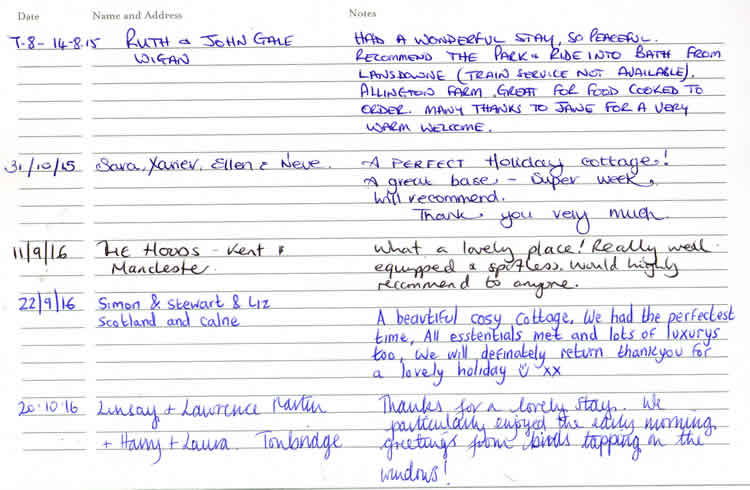 Date Name and Address Notes
7-8-14-8.15 RUTH & JOHN GALE HAD A WONDERFUL STAY, SO PEACEFUL.
WIGAN RECOMMEND THE PARK & RIDE INTO BATH FROM
LANSDOWNE (TRAIN SERVICE NOT AVAILABLE).
ALLINGTON FARM. GREAT FOR FOOD COOKED TO
ORDER. MANY THANKS TO JANE FOR A VERY
WARM WELCOME.
31/10/15 Sara, Xavier, Ellen & Neve. A PERFECT Holiday Cottage!
A great base - Super week,
will recommend.
Thank you very much.
11/9/16 THE HOODS - Kent & What a lovely place! Really well
Manchester. equipped & spotless. Would highly
recommend to anyone.
22/9/16 Simon & Stewart & Liz
Scotland and Calne A beautiful cosy cottage. We had the perfectest
time, All esstentials met and lots of luxurys
too, We will definately return thankyou for
a lovely holiday ☺ xx
20.10.16 Linsay + Lawrence Martin Thanks for a lovely stay. We
+ Harry + Laura. Tonbridge particularly enjoyed the early morning
greetings from birds tapping on the
windows!